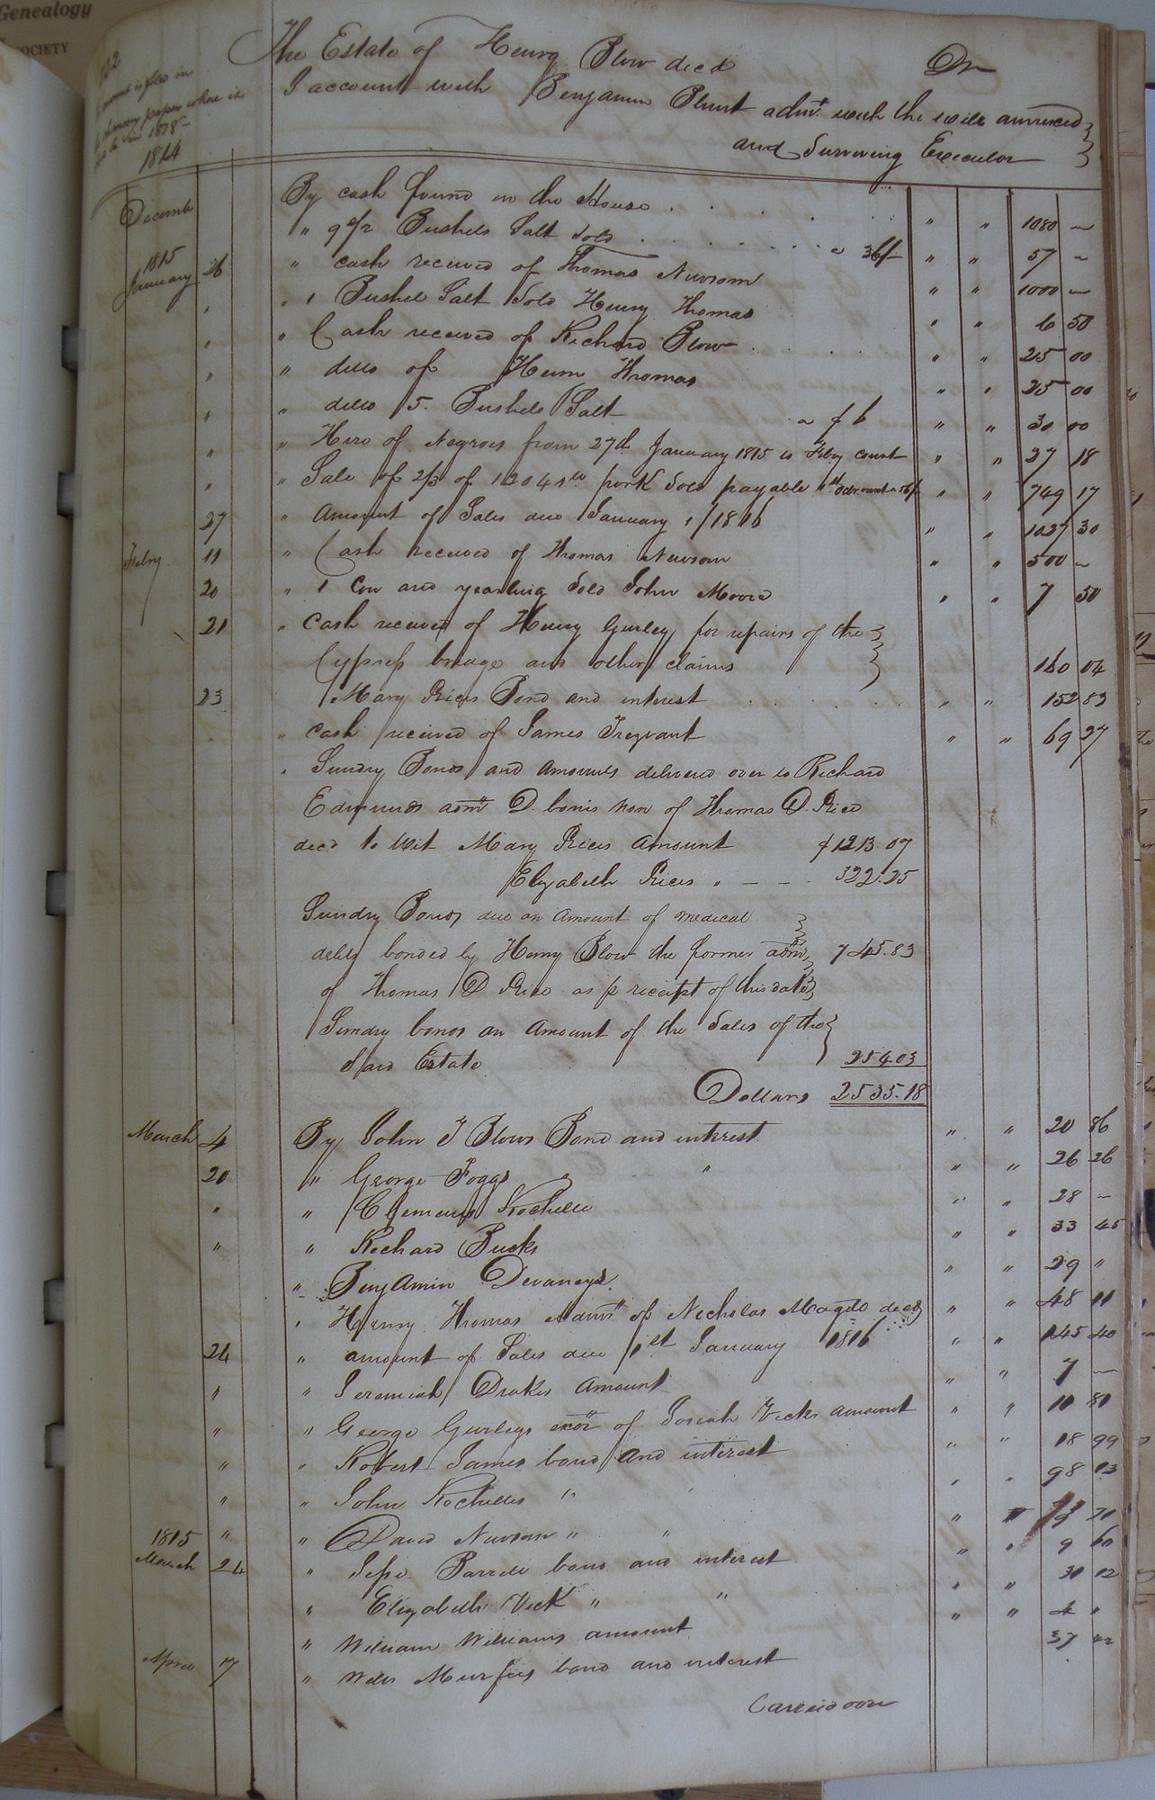 Genealogy
SOCIETY
The Estate of Henry Blow decd Dr
I account with Benjamin Blunt admr. with the will annexed
and Surviving Executor
1814
December By cash found in the House 1080 —
" 9 1/2 Bushels Salt Sold a 36/ " " 57 —
1815
January 26 " cash received of Thomas Newsom " " 1000 —
" " 1 Bushel Salt Sold Henry Thomas " " 6 50
" " Cash received of Richard Blow " " 25 00
" " ditto of Henry Thomas " " 25 00
" " ditto 5 Bushels Salt a $6 " " 30 00
" " Hire of Negroes from 27th January 1815 to Feby court " " 27 18
" " Sale of 2/3 of 12041 lb pork Sold payable " " 749 17
27 " Amount of Sales due January 1/1816 " " 1027 30
Febry 11 " Cash received of Thomas Newsom " " 500 —
20 " 1 Cow and yearling Sold John Moore " " 7 50
21 " Cash received of Henry Gurley for repairs of the
Cypress bridge and other claims 160 04
23 Mary Rices Bond and interest " " 152 83
" Cash received of James Trezvant " " 69 27
" Sundry Bonds and amounts delivered over to Richard
Edmunds admr D. bonis non of Thomas D. Rice
decd to Wit Mary Rices amount $1213.07
Elizabeth Rices " — — 322.25
Sundry Bonds due on amount of medical
debts bonded by Henry Blow the former admr 745.83
of Thomas D Rice as p receipt of this date
Sundry bonds on amount of the Sales of the
Said Estate 254.03
Dollars 2535.18
March 4 By John T Blows Bond and interest " " 20 86
20 " George Foggs " " " 26 26
" " Clements Rochelle " " 28 —
" " Richard Bucks " " 33 45
" Benjamin Devaneys " " 29 "
" Henry Thomas admr of Nicholas decd " " 48 11
24 " amount of Sales due 1st January 1816 " " 145 40
" " Jeremiah Drakes amount " " 7 —
" " George Gurleys exor of Josiah Vicks amount " " 10 80
" " Robert James bond and interest " " 18 99
" " John Rochelles " " " " 98 13
1815 " " David Newsom " " " 70
March 24 " Jesse Barrett bond and interest " " 9 60
" Elizabeth Vick " " " " 30 12
" William Williams amount " " 4 "
April 17 " Wills Murfees bond and interest 37
Carried over